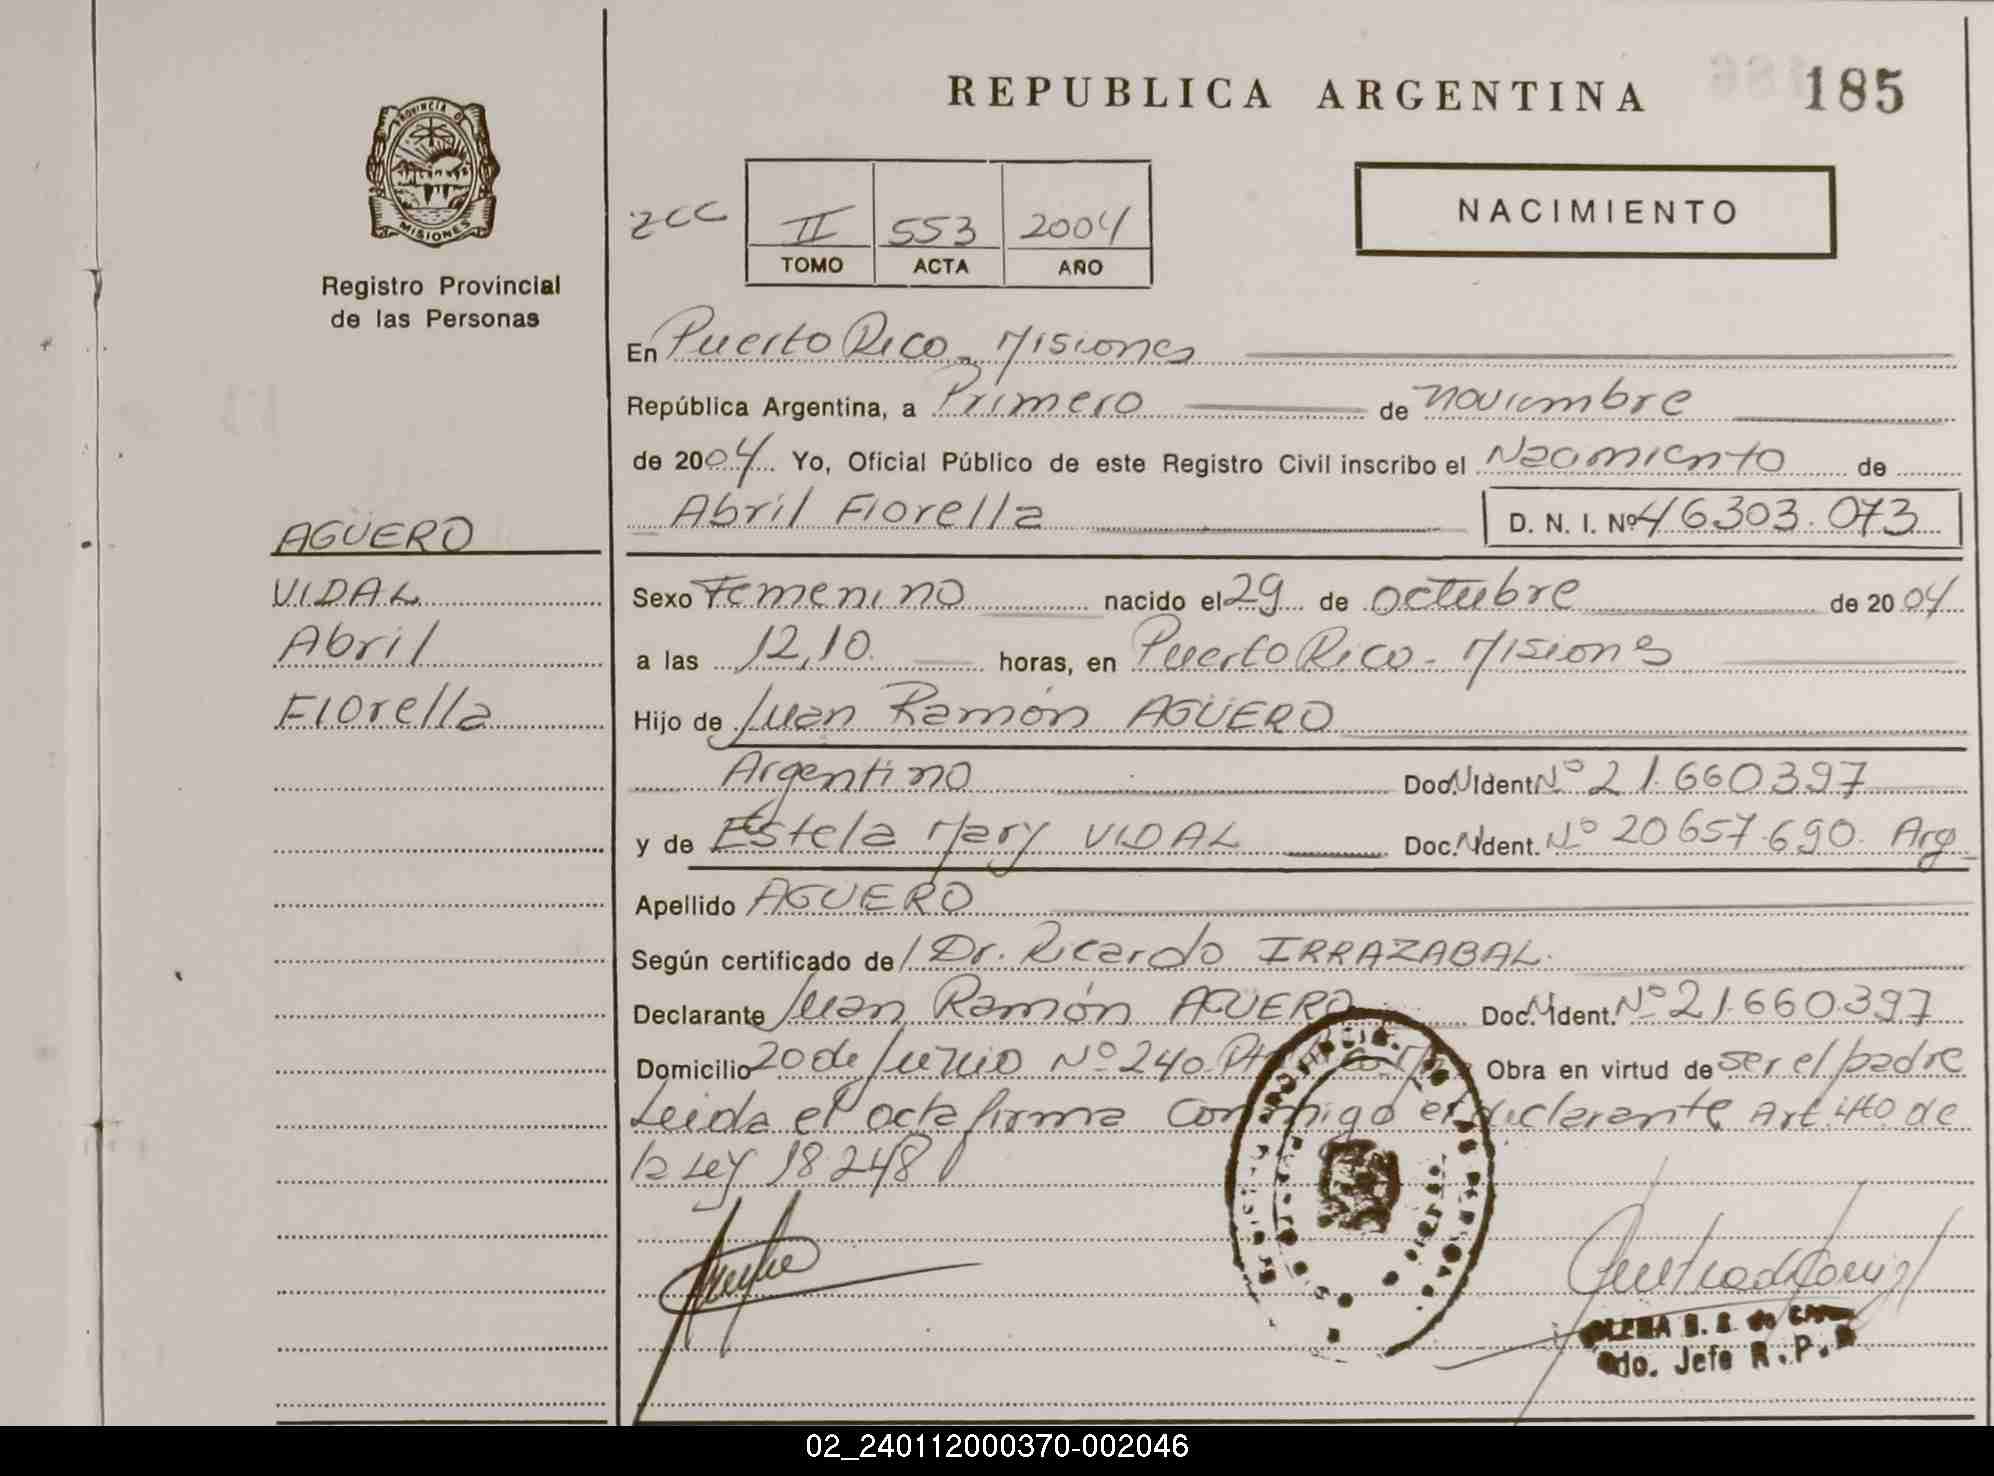 REPUBLICA ARGENTINA 185
PROVINCIA DE
MISIONES
Registro Provincial
de las Personas
NACIMIENTO
II 553 2004
TOMO ACTA AÑO
En Puerto Rico - Misiones
República Argentina, a Primero de noviembre
de 2004. Yo, Oficial Público de este Registro Civil inscribo el Nacimiento de
Abril Fiorella D. N. I. Nº 46303.073
AGÜERO
VIDAL
Abril
Fiorella
Sexo Femenino nacido el 29 de octubre de 2004
a las 12,10 horas, en Puerto Rico - Misiones
Hijo de Juan Ramón AGÜERO
Argentino Doc. Ident Nº 21.660397
y de Estela Mary VIDAL Doc. Ident. Nº 20657.690. Arg
Apellido AGUERO
Según certificado del Dr. Ricardo IRRAZABAL.
Declarante Juan Ramón AGUERO Doc. Ident. Nº 21.660.397
Domicilio 20 de Junio Nº 240 Obra en virtud de ser el padre
Leida el acta firma conmigo el declarante Art. 40 de
la Ley 18248
Jefe R. P.
02_240112000370-002046